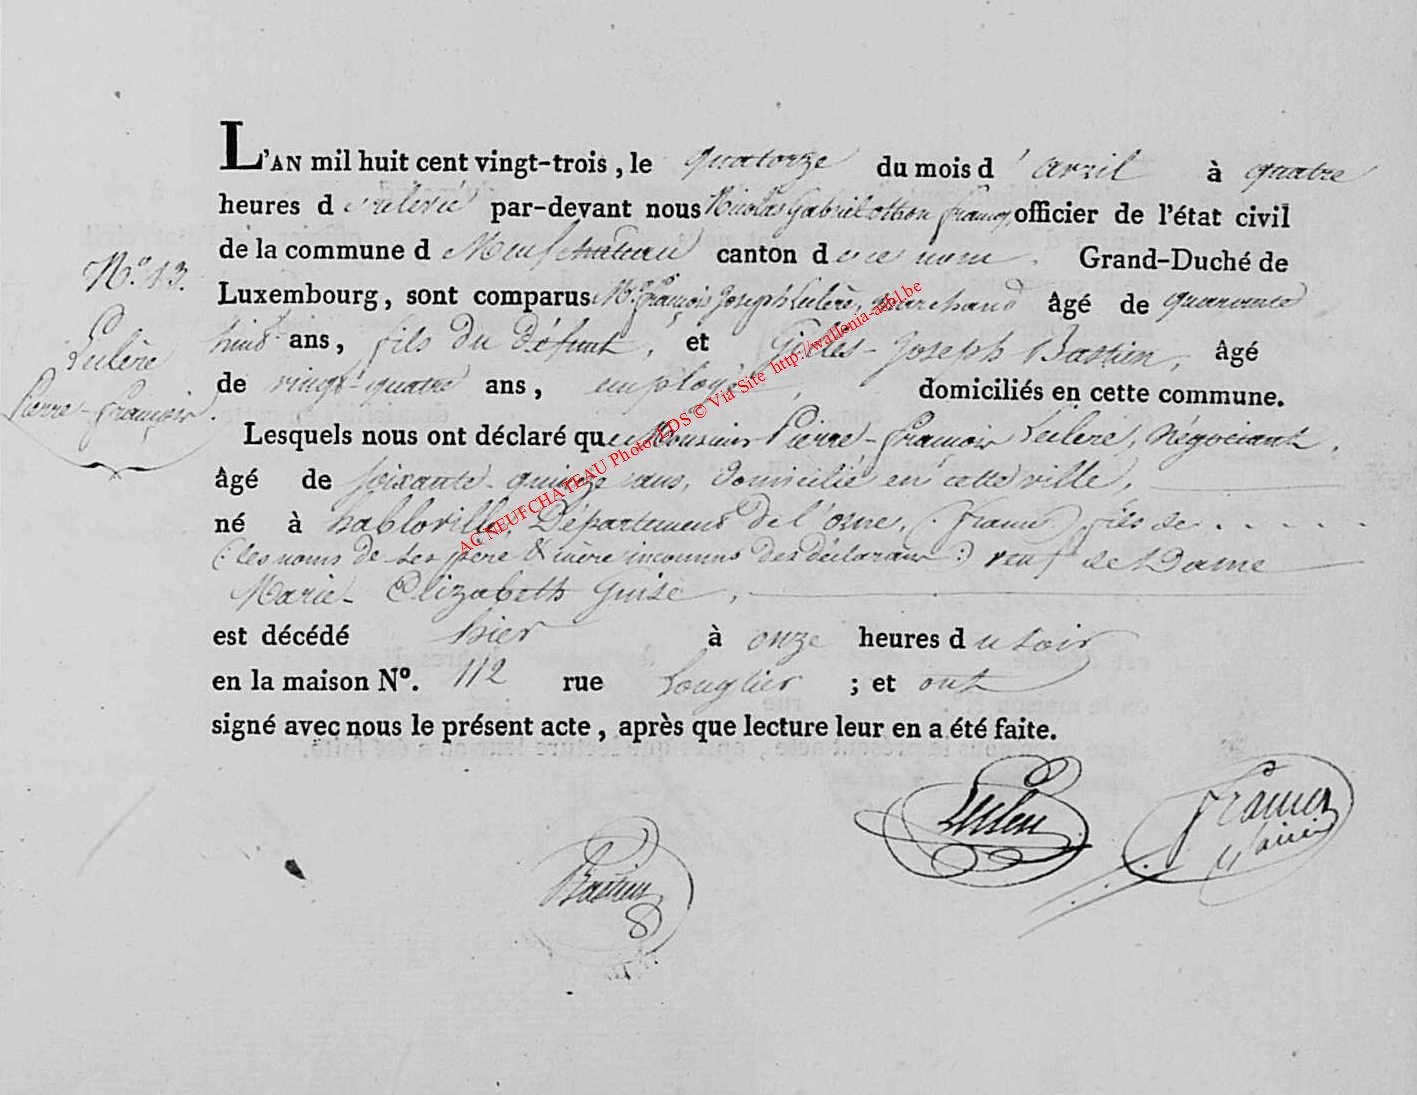 L'AN mil huit cent vingt-trois, le quatorze du mois d'avril à quatre
heures de relevée par-devant nous Nicolas Gabriel othon françq officier de l'état civil
de la commune de Neufchateau canton de ce nom. Grand-Duché de
N.° 13.
Luxembourg, sont comparus Mr. François Joseph Leclère, marchand âgé de quarante
huit ans, fils du défunt, et Gilles-Joseph Bastien, âgé
Leclère
Pierre-françois
de vingt-quatre ans, employé, domiciliés en cette commune.
Lesquels nous ont déclaré que Monsieur Pierre-françois Leclere, négociant,
âgé de soixante-quinze ans, domicilié en cette ville,
né à habloville, Département de l'orne, (france) fils de . . . . . .
(:les noms de ses père & mère inconnus des déclarans:) veuf de Dame
Marie-Elizabeth Guise,
est décédé hier à onze heures du soir
en la maison N°. 112 rue Longlier ; et ont
signé avec nous le présent acte, après que lecture leur en a été faite.
Bastien
AC NEUFCHATEAU Photo LDS © Via Site http://wallonia-asbl.be